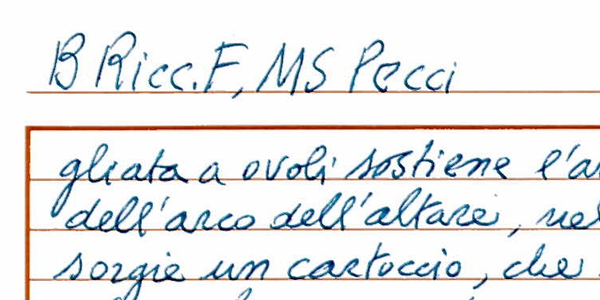 B Ricc. F, MS Pecci
gliata a ovoli sostiene l'a
dell'arco dell'altare, nel
sorgie un cartoccio, che